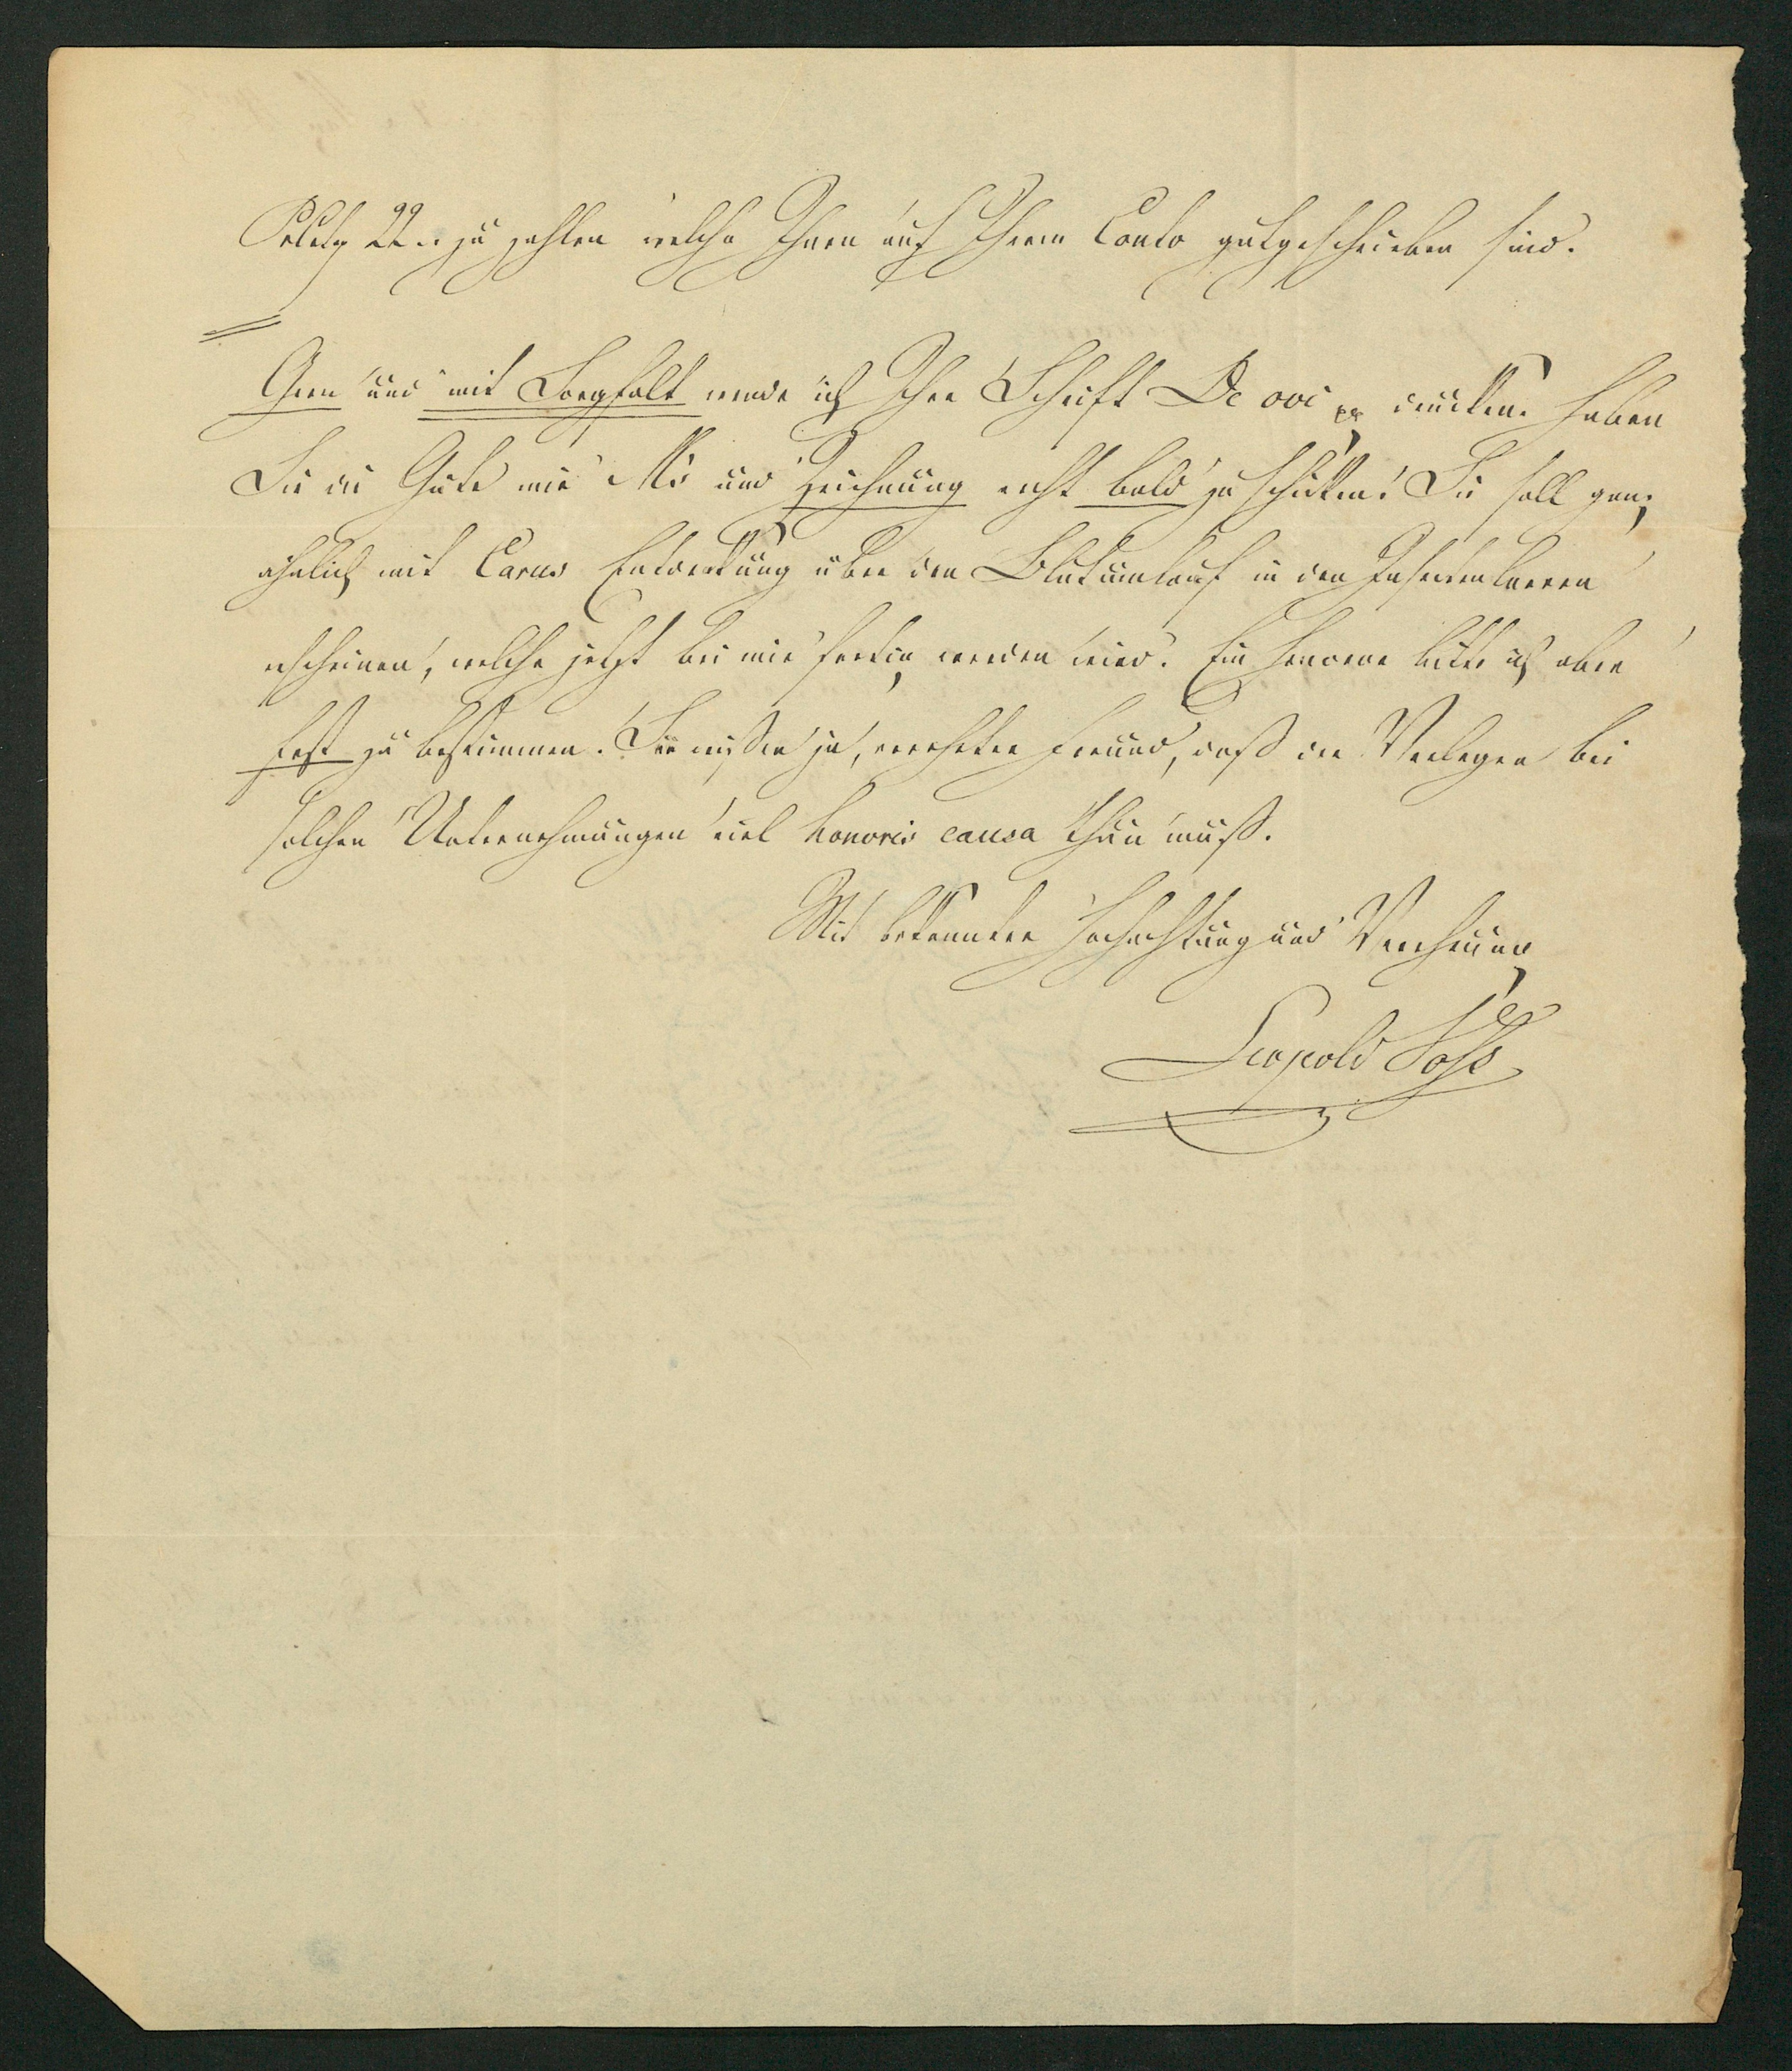 22 zu zahlen welche Ihnen auf Ihrem Conto gutgeschrieben sind.
Gern und mit Sorgfalt werde ich Ihre Schrift De ovi drucken. Haben
Sie die Güte mir Ms und Zeichnung recht bald zu schicken! Sie soll ganz
ähnlich mit Carus Entdeckung über den Blutumlauf in den Insectenlarven
erscheinen, welche jetzt bei mir fertig werden wird. Ein Honorar bitte ich aber
fest zu bestimmen. Sie wissen ja, verehrter Freund, daß der Verleger bei
solchen Unternehmungen viel honoris causa thun muß.
Mit bekannter Hochachtung und Verehrung
Leopold Voß